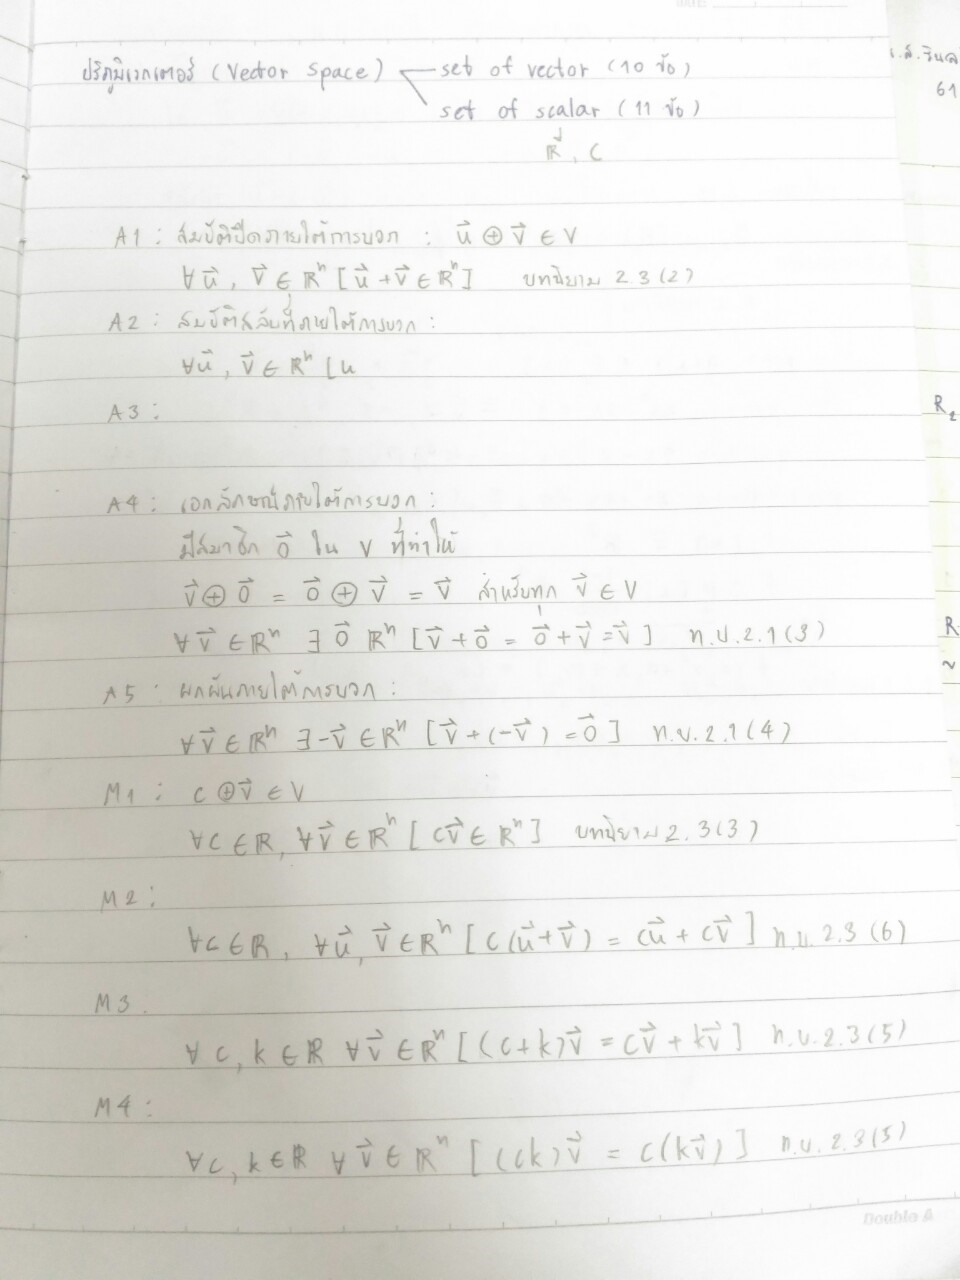 ปริภูมิเวกเตอร์ (Vector Space) set of vector (10 ข้อ)
set of scalar (11 ข้อ)
ℝ, C
61
A1 : สมบัติปิดภายใต้การบวก : u⃗ ⊕ v⃗ ∈ V
∀u⃗, v⃗ ∈ ℝⁿ [u⃗ + v⃗ ∈ ℝⁿ] บทนิยาม 2.3(2)
A2 : สมบัติสลับที่ภายใต้การบวก :
∀u⃗, v⃗ ∈ ℝⁿ [u
A3 :
R₂
A4 : เอกลักษณ์ภายใต้การบวก :
มีสมาชิก 0⃗ ใน V ที่ทำให้
v⃗ ⊕ 0⃗ = 0⃗ ⊕ v⃗ = v⃗ สำหรับทุก v⃗ ∈ V
∀v⃗ ∈ ℝⁿ ∃0⃗ ℝⁿ [v⃗ + 0⃗ = 0⃗ + v⃗ = v⃗] ท.บ.2.1(3)
R
~
A5 : ผกผันภายใต้การบวก :
∀v⃗ ∈ ℝⁿ ∃-v⃗ ∈ ℝⁿ [v⃗ + (-v⃗) = 0⃗] ท.บ.2.1(4)
M1 : c ⊕ v⃗ ∈ V
∀c ∈ ℝ, ∀v⃗ ∈ ℝⁿ [cv⃗ ∈ ℝⁿ] บทนิยาม 2.3(3)
M2 :
∀c ∈ ℝ, ∀u⃗, v⃗ ∈ ℝⁿ [c(u⃗ + v⃗) = cu⃗ + cv⃗] ท.บ.2.3(6)
M3.
∀c, k ∈ ℝ ∀v⃗ ∈ ℝⁿ [(c+k)v⃗ = cv⃗ + kv⃗] ท.บ.2.3(5)
M4 :
∀c, k ∈ ℝ ∀v⃗ ∈ ℝⁿ [(ck)v⃗ = c(kv⃗)] ท.บ.2.3(5)
Double A